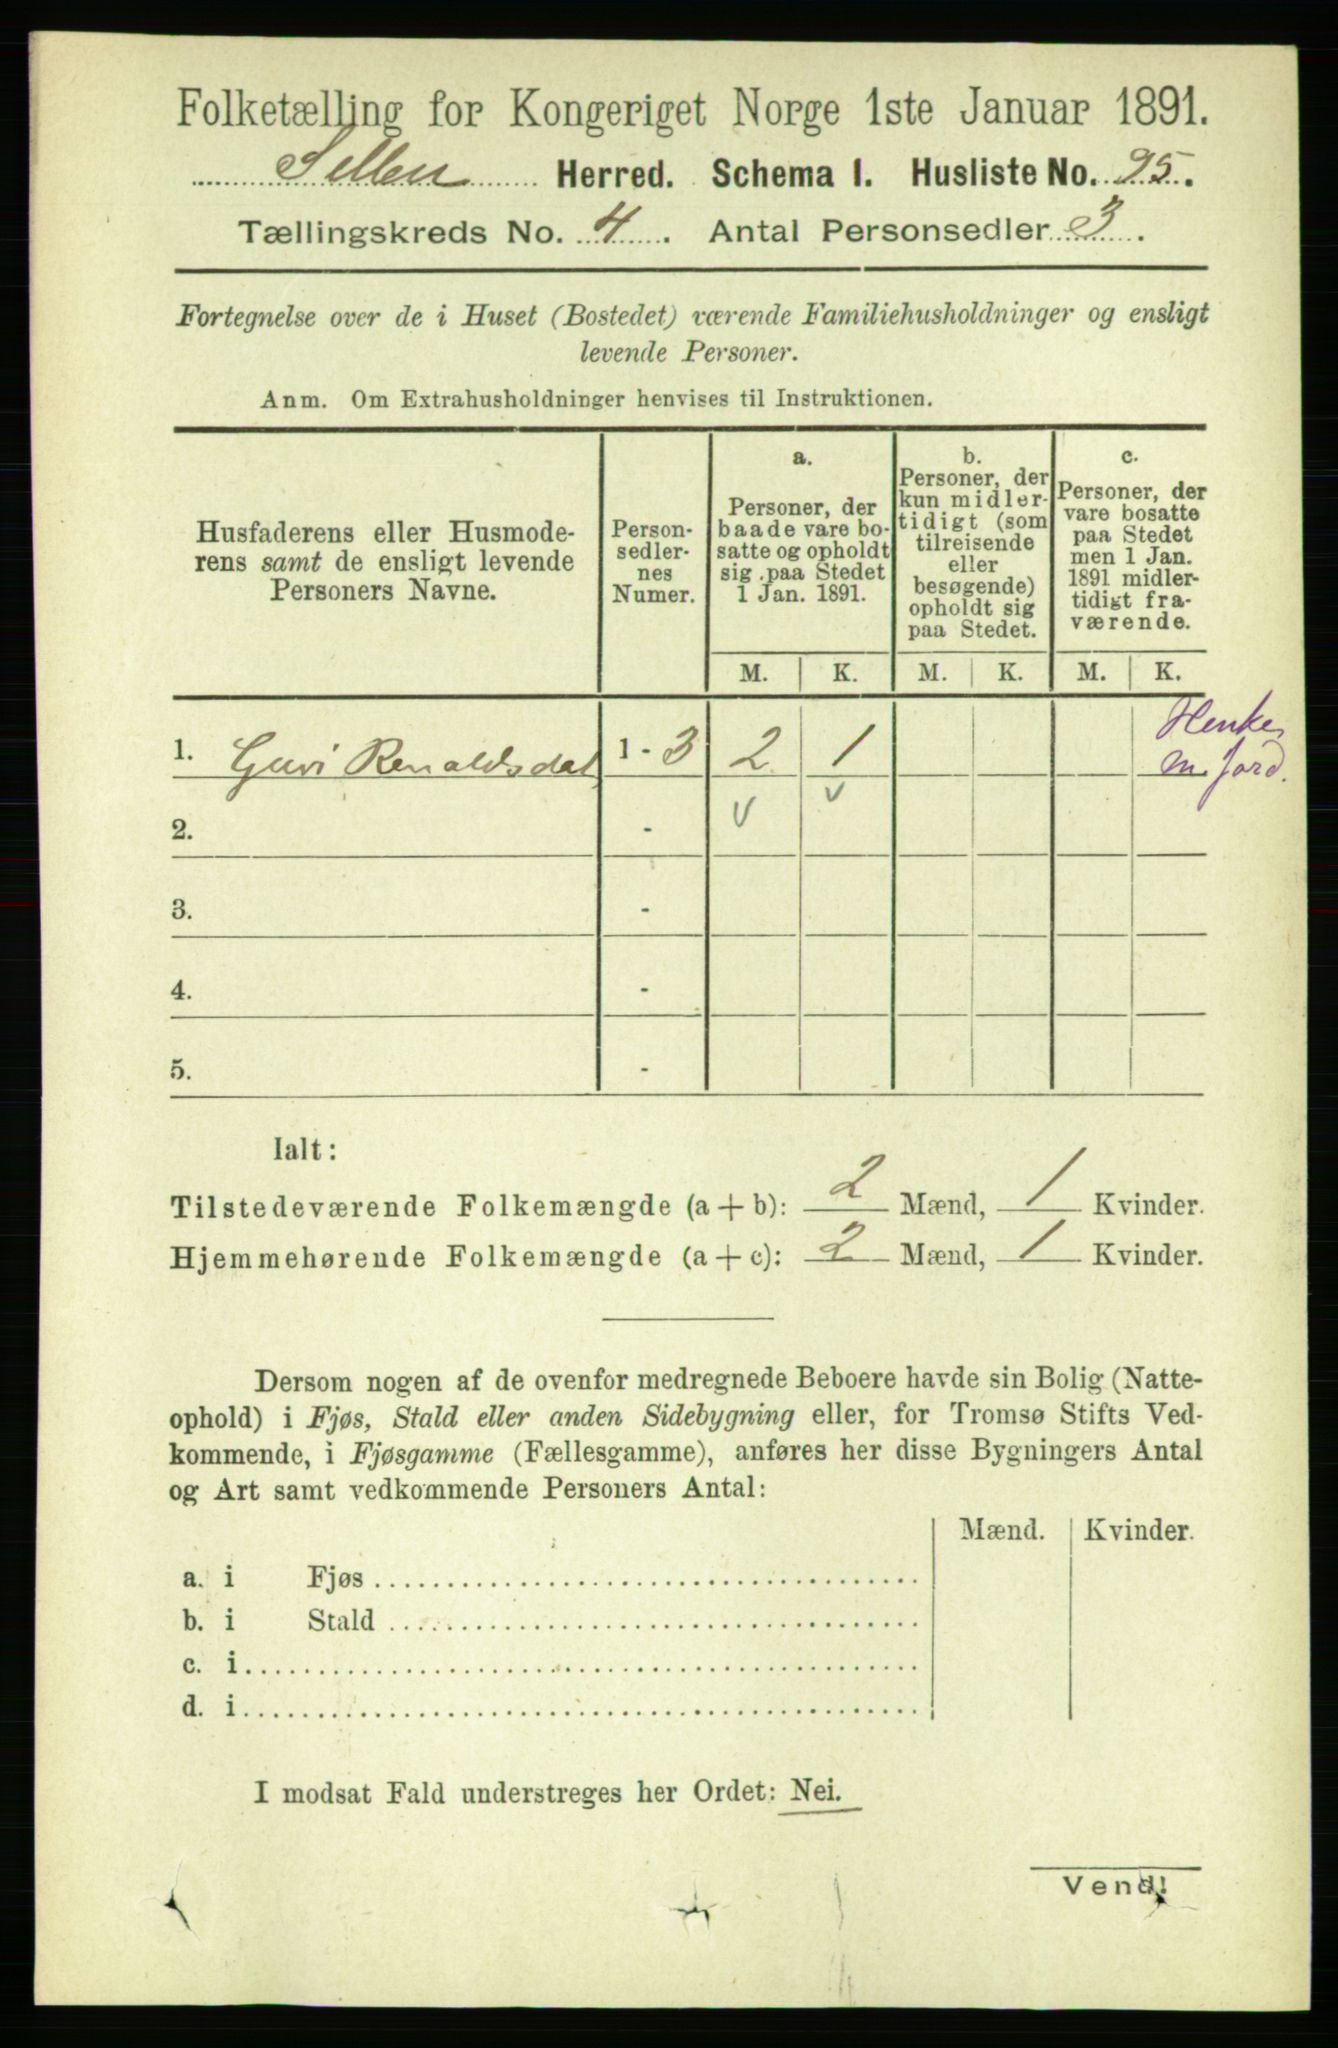 Folketælling for Kongeriget Norge 1ste Januar 1891.
Herred. Schema I. Husliste No. 95.
Tællingskreds No. 4. Antal Personsedler 3.
Fortegnelse over de i Huset (Bostedet) værende Familiehusholdninger og ensligt
levende Personer.
Anm. Om Extrahusholdninger henvises til Instruktionen.
Husfaderens eller Husmode-
rens samt de ensligt levende
Personers Navne.
Person-
sedler-
nes
Numer.
a.
Personer, der
baade vare bo-
satte og opholdt
sig paa Stedet
1 Jan. 1891.
b.
Personer, der
kun midler-
tidigt (som
tilreisende
eller
besøgende)
opholdt sig
paa Stedet.
c.
Personer, der
vare bosatte
paa Stedet
men 1 Jan.
1891 midler-
tidigt fra-
værende.
M. K. M. K. M. K.
1. Guri Renaldsdat 1 - 3 2 1
Henke
m. jord.
2. -
v v
3. -
4. -
5. -
Ialt:
Tilstedeværende Folkemængde (a + b): 2 Mænd, 1 Kvinder.
Hjemmehørende Folkemængde (a + c): 2 Mænd, 1 Kvinder.
Dersom nogen af de ovenfor medregnede Beboere havde sin Bolig (Natte-
ophold) i Fjøs, Stald eller anden Sidebygning eller, for Tromsø Stifts Ved-
kommende, i Fjøsgamme (Fællesgamme), anføres her disse Bygningers Antal
og Art samt vedkommende Personers Antal:
Mænd. Kvinder.
a. i Fjøs
b. i Stald
c. i
d. i
I modsat Fald understreges her Ordet: Nei.
Vend!